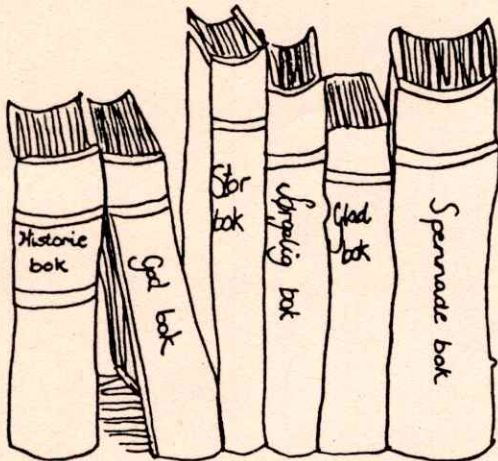 Historie
bok
God bok
Stor
bok
Sørgelig bok
Glad
bok
Spennade bok